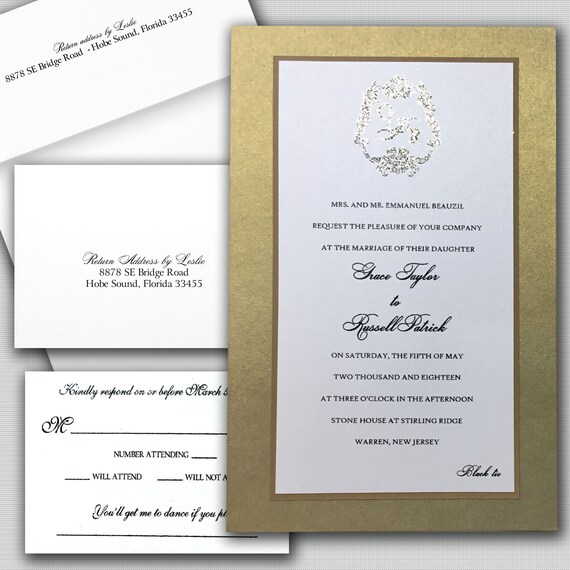 Return address by Leslie
8878 SE Bridge Road - Hobe Sound, Florida 33455
Return Address by Leslie
8878 SE Bridge Road
Hobe Sound, Florida 33455
Kindly respond on or before March 5
M
NUMBER ATTENDING
WILL ATTEND WILL NOT A
You'll get me to dance if you pl
MRS. AND MR. EMMANUEL BEAUZIL
REQUEST THE PLEASURE OF YOUR COMPANY
AT THE MARRIAGE OF THEIR DAUGHTER
Grace Taylor
to
Russell Patrick
ON SATURDAY, THE FIFTH OF MAY
TWO THOUSAND AND EIGHTEEN
AT THREE O'CLOCK IN THE AFTERNOON
STONE HOUSE AT STIRLING RIDGE
WARREN, NEW JERSEY
Black tie